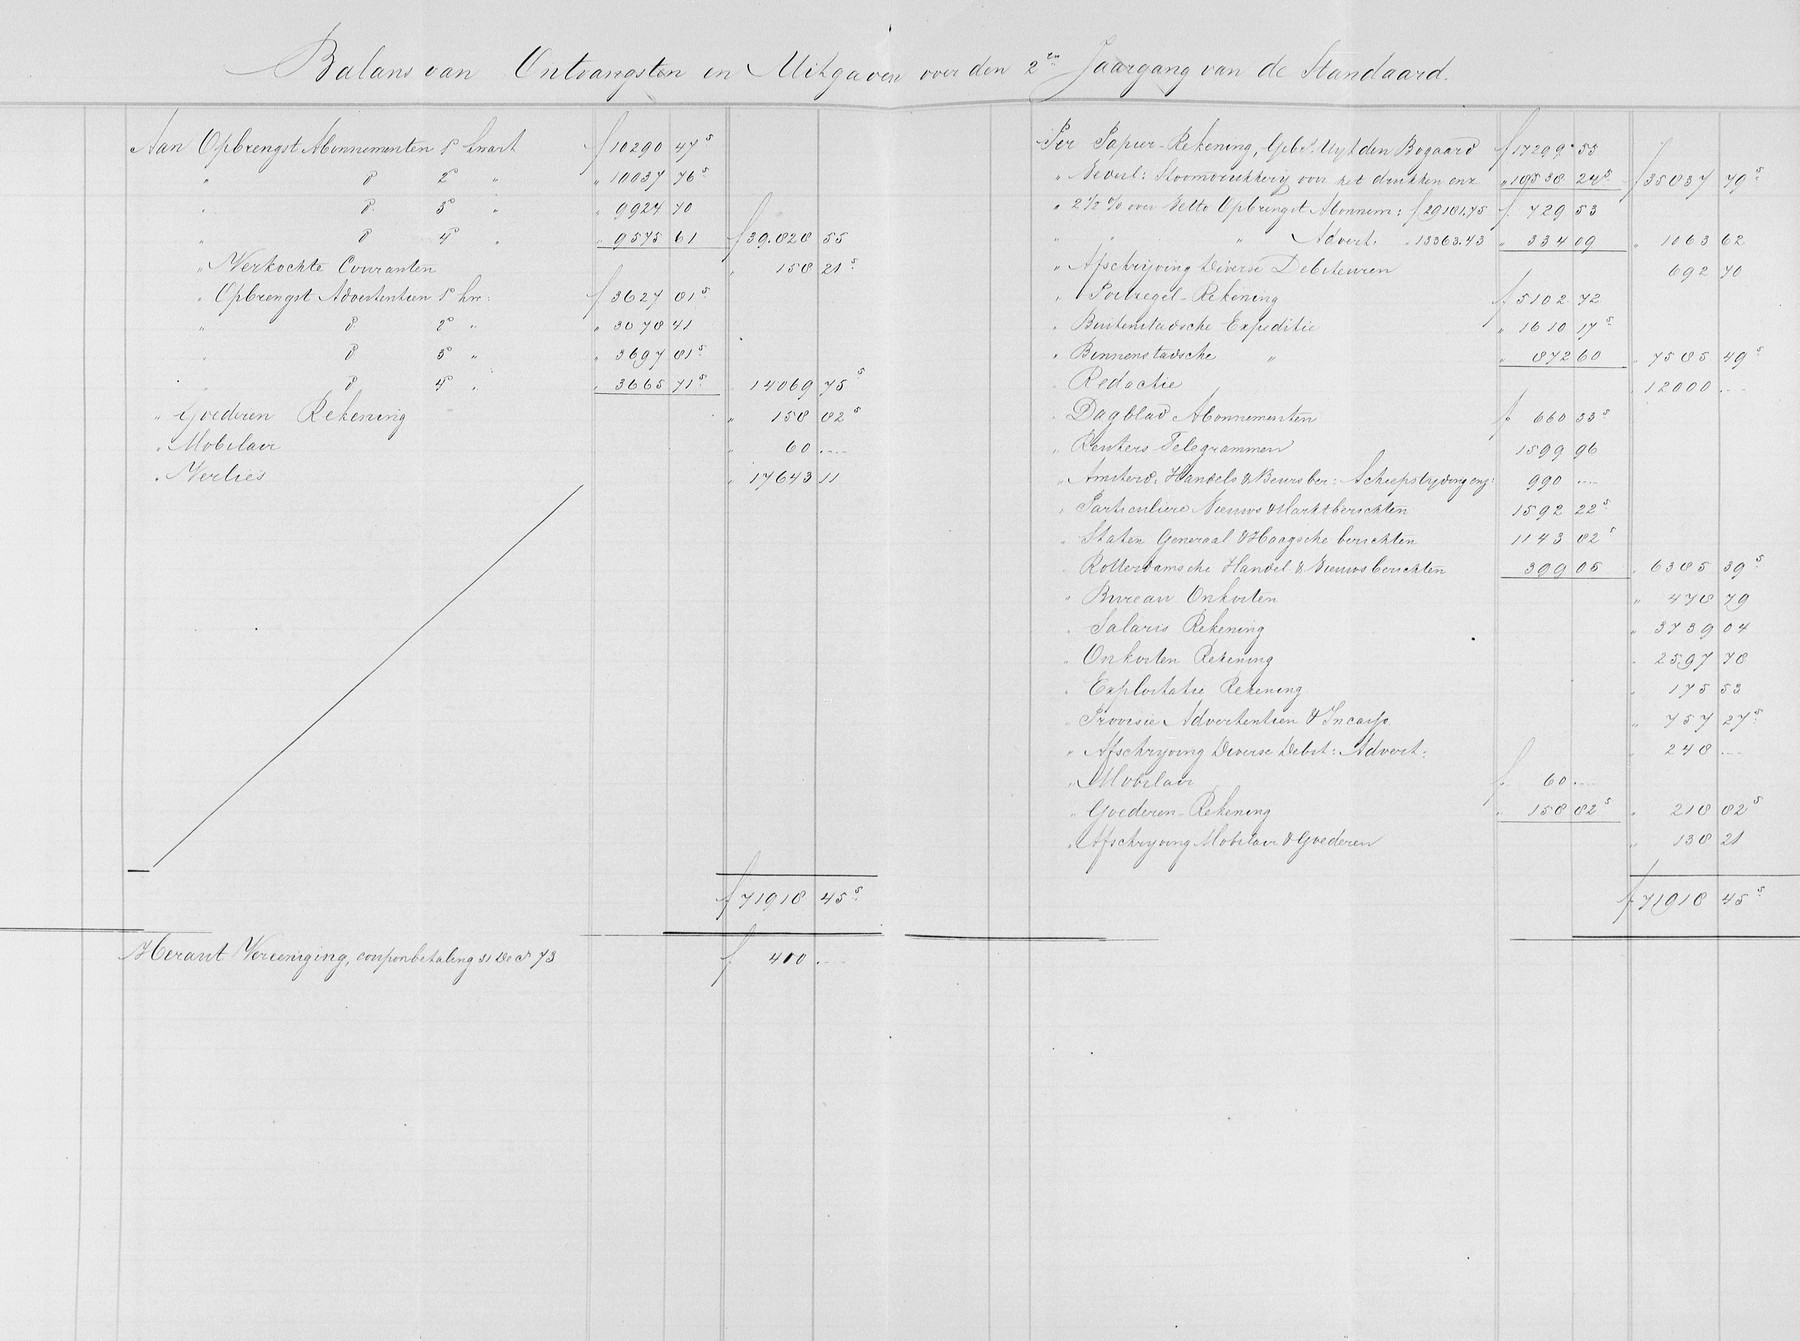 Balans van Ontvangsten en Uitgaven over den 2en Jaargang van de Standaard.
Aan Opbrengst Abonnementen 1e kwart f 10290 47⁵
" " 2e " " 10037 76⁵
" " 3e " " 9924 70
" " 4e " " 9575 61 f 39.828 55
" Verkochte Couranten " 158 21⁵
" Opbrengst Advertentien 1e kw: f 3627 81⁵
" " 2e " " 3078 41
" " 3e " " 3697 81⁵
" " 4e " " 3665 71⁵ " 14069 75⁵
" Goederen Rekening " 158 82⁵
" Mobilair " 60 ....
" Verlies " 17643 11
f 71918 45⁵
Heraut Vereeniging, couponbetaling 31 Dec 73 f 400 ....
Per Papier-Rekening, Gebrs Uyt den Bogaard f 17299 55
" Nederl: Stoomdrukkerij voor het drukken enz " 18538 24⁵ f 35837 79⁵
" 2½ % over Netto Opbrengst Abonnem: f 29181.75 f 729 53
" " " Advert. " 13363.43 " 334 09 " 1063 62
" Afschrijving Diverse Debiteuren 692 70
" Postzegel-Rekening f 5102 72
" Buitenstadsche Expeditie " 1610 17⁵
" Binnenstadsche " " 872 60 " 7585 49⁵
" Redactie " 12000 ....
" Dagblad Abonnementen f 660 33⁵
" Reuters Telegrammen 1599 96
" Amsterd. Handels & Beursber: Scheepstijding enz: 990 ....
" Particuliere Nieuws & Marktberichten 1592 22⁵
" Staten Generaal & Haagsche berichten 1143 82⁵
" Rotterdamsche Handel & Nieuwsberichten 399 05 " 6385 39⁵
" Bureau Onkosten " 478 79
" Salaris Rekening " 3739 04
" Onkosten Rekening " 2597 78
" Exploitatie Rekening " 175 53
" Provisie Advertentien & Incasso " 757 27⁵
" Afschrijving Diverse Debit: Advert: " 248 ....
" Mobilair f 60 ....
" Goederen-Rekening " 158 82⁵ " 218 82⁵
" Afschrijving Mobilair & Goederen " 138 21
f 71918 45⁵